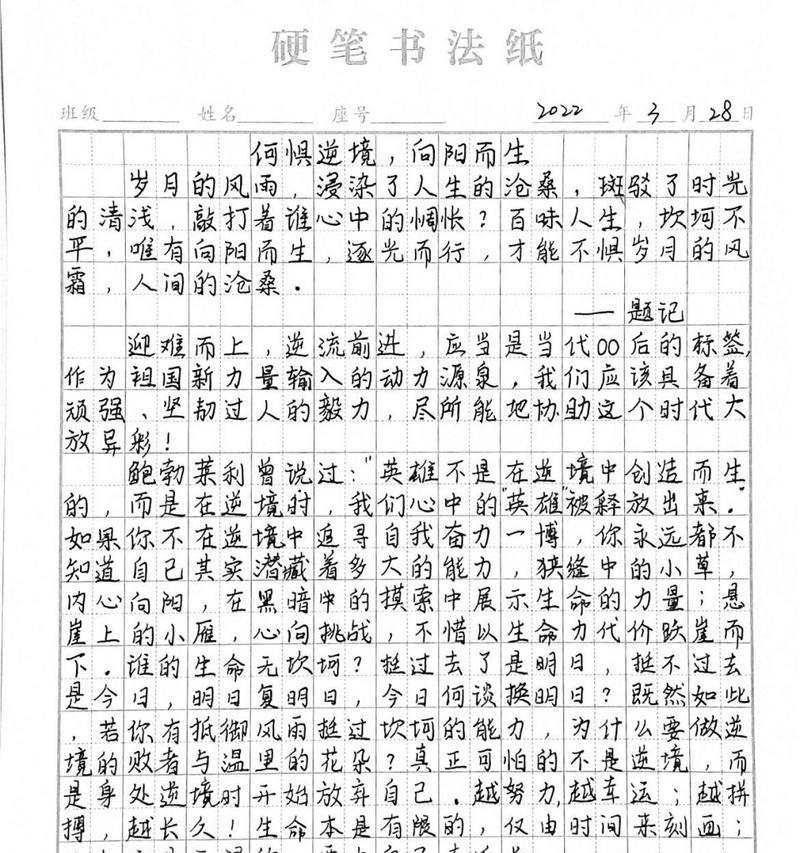 硬笔书法纸
班级 姓名 座号 2022年3月28日
何惧逆境，向阳而生
岁月的风雨，浸染了人生的沧桑，斑驳了时光
的清浅，敲打着谁心中的惆怅？百味人生，坎坷不
平，唯有向阳而生，逐光而行，才能不惧岁月的风
霜，人间的沧桑．
——题记
迎难而上，逆流前进，应当是当代00后的标签，
作为祖国新力量输入的动力源泉，我们应该具备着
顽强、坚韧过人的毅力，尽所能地协助这个时代大
放异彩！
鲍勃莱利曾说过："英雄不是在逆境中创造而生
的，而是在逆境时，我们心中的"英雄"被释放出来．"
如果你不在逆境中追寻自我奋力一博，你永远都不
知道自己其实潜藏着多大的能力，狭缝中的小草，
内心向阳，在黑暗中的摸索中展示生命的力量；悬
崖上的小雁，心向挑战，不惜以生命力代价跃崖而
下．谁的生命无坎坷？挺过去了是明日，挺不过去
是今日，明日复明日，今日何谈换明日？既然如此
，若你有抵御风雨挺过坎坷的能力，为什么要做逆
境的败者与温里的花朵？真正可怕的不是逆境，而
是身处逆境时开始放弃自己．越努力，越幸运；越拼
搏，越长久！生命本是有限的，仅由时间来刻画；